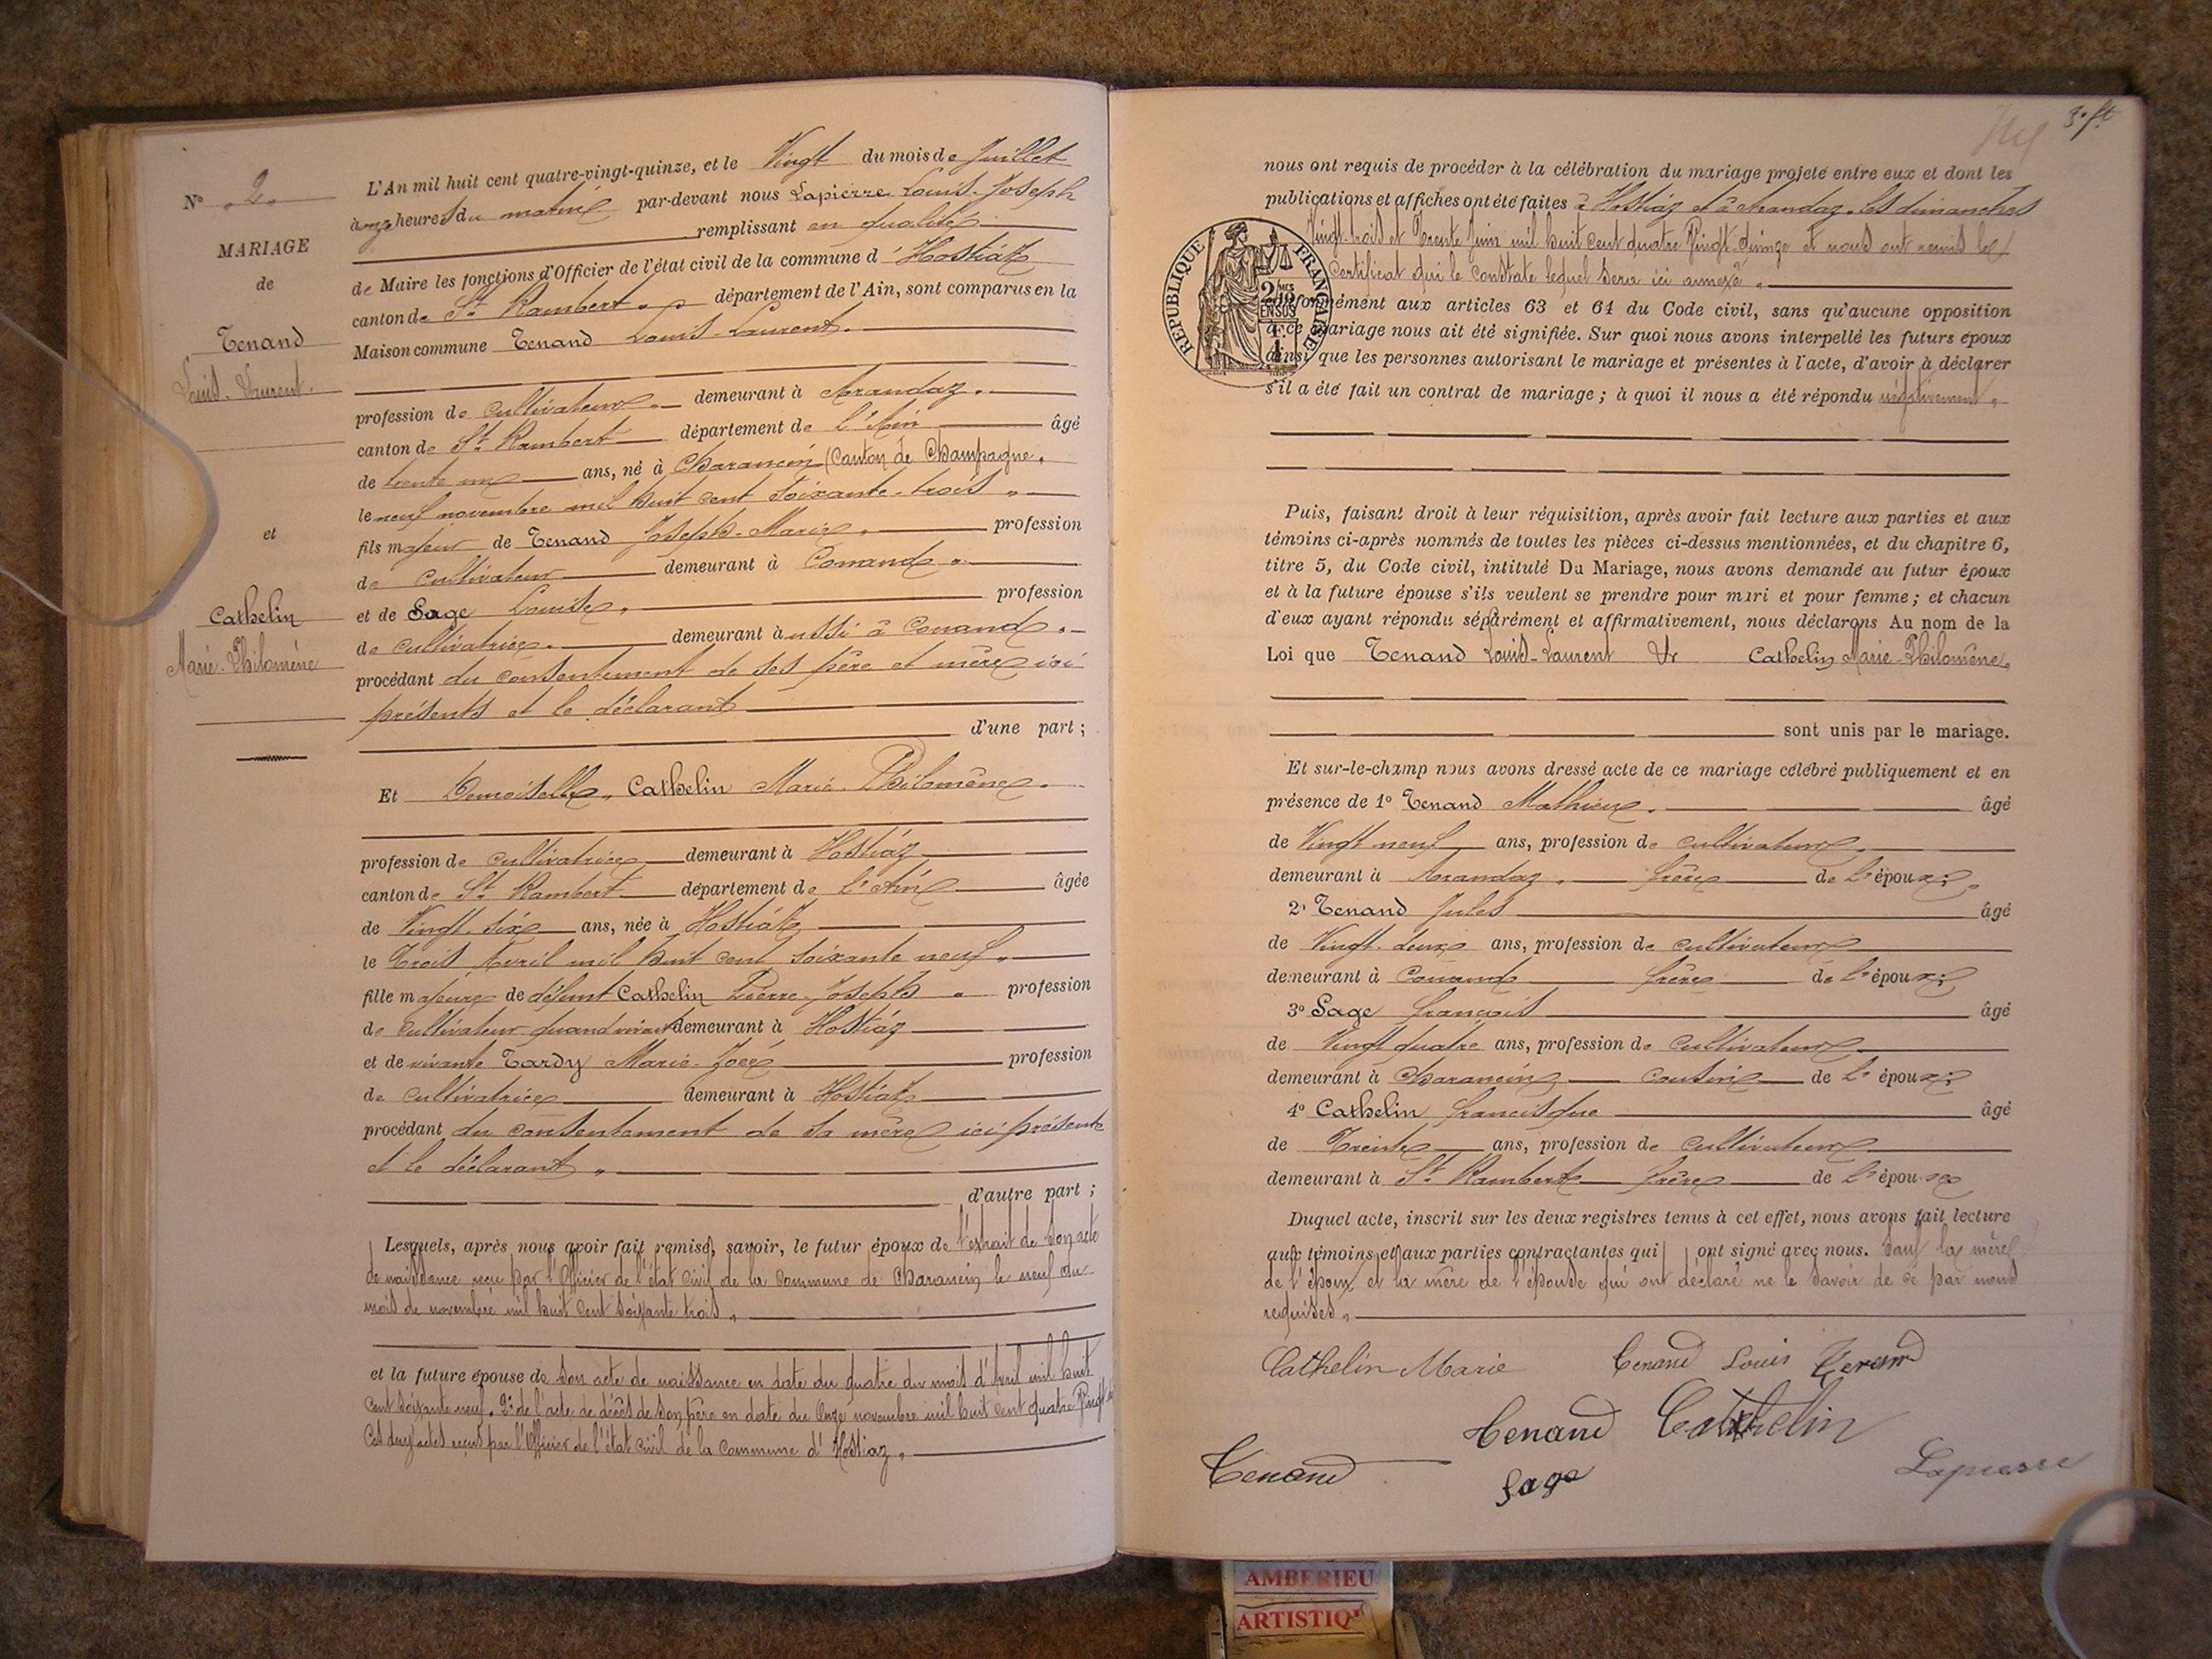 N° 2.
MARIAGE
de
Tenand
Louis-Laurent.
et
Cathelin
Marie-Philomène
L'An mil huit cent quatre-vingt-quinze, et le Vingt du mois de Juillet
à onze heures du matin par-devant nous Lapierre Louis-Joseph
remplissant en qualité
de Maire les fonctions d'Officier de l'état civil de la commune d'Hostiaz
canton de St Rambert département de l'Ain, sont comparus en la
Maison commune Tenand Louis-Laurent.
profession de cultivateur demeurant à Arandaz.
canton de St Rambert département de l'Ain âgé
de trente un ans, né à Charancin (Canton de Champagne,
le neuf novembre mil huit cent soixante-trois
fils majeur de Tenand Joseph-Marie profession
de cultivateur demeurant à Conand
et de Sage Louise, profession
de cultivatrice. demeurant à aussi à Conand
procédant du consentement de ses père et mère ici
présents et le déclarant
d'une part;
Et Demoiselle Cathelin Marie-Philomène.
profession de cultivatrice demeurant à Hostiaz
canton de St Rambert département de l'Ain âgée
de Vingt-six ans, née à Hostiaz
le trois Avril mil huit cent soixante neuf
fille majeure de défunt Cathelin Pierre-Joseph profession
de cultivateur quand vivait demeurant à Hostiaz
et de vivante Tardy Marie- profession
de cultivatrice demeurant à Hostiaz
procédant du consentement de sa mère ici présente
et le déclarant
d'autre part;
Lesquels, après nous avoir fait remise, savoir, le futur époux de l'extrait de son acte
de naissance reçu par l'Officier de l'état civil de la commune de Charancin le neuf du
mois de novembre mil huit cent soixante trois
et la future épouse de son acte de naissance en date du quatre du mois d'Avril mil huit
cent soixante neuf. 2° de l'acte de décès de son père en date du onze novembre mil huit cent quatre Vingt
Ces deux actes reçus par l'Officier de l'état civil de la commune d'Hostiaz
3e ft
nous ont requis de procéder à la célébration du mariage projeté entre eux et dont les
publications et affiches ont été faites à Hostiaz et à Arandaz les dimanches
Vingt-trois et Trente Juin mil huit cent quatre Vingt quinze et nous ont remis le
Certificat qui le constate lequel sera ici annexé
RÉPUBLIQUE FRANÇAISE
2/10mes EN SUS
conformément aux articles 63 et 64 du Code civil, sans qu'aucune opposition
à ce mariage nous ait été signifiée. Sur quoi nous avons interpellé les futurs époux
ainsi que les personnes autorisant le mariage et présentes à l'acte, d'avoir à déclarer
s'il a été fait un contrat de mariage; à quoi il nous a été répondu négativement
Puis, faisant droit à leur réquisition, après avoir fait lecture aux parties et aux
témoins ci-après nommés de toutes les pièces ci-dessus mentionnées, et du chapitre 6,
titre 5, du Code civil, intitulé Du Mariage, nous avons demandé au futur époux
et à la future épouse s'ils veulent se prendre pour mari et pour femme; et chacun
d'eux ayant répondu séparément et affirmativement, nous déclarons Au nom de la
Loi que Tenand Louis-Laurent & Cathelin Marie-Philomène
sont unis par le mariage.
Et sur-le-champ nous avons dressé acte de ce mariage célébré publiquement et en
présence de 1° Tenand Mathieu. âgé
de Vingt neuf ans, profession de cultivateur
demeurant à Arandaz. frère de l'époux
2° Tenand Jules âgé
de Vingt-deux ans, profession de cultivateur
demeurant à Conand frère de l'époux
3° Sage François âgé
de Vingt quatre ans, profession de cultivateur
demeurant à Charancin cousin de l'époux
4° Cathelin Francisque âgé
de Trente ans, profession de cultivateur
demeurant à St Rambert frère de l'épouse
Duquel acte, inscrit sur les deux registres tenus à cet effet, nous avons fait lecture
aux témoins et aux parties contractantes qui ont signé avec nous. Sauf la mère
de l'époux et la mère de l'épouse qui ont déclaré ne le savoir de ce par nous
requises
Cathelin Marie Tenand Louis Tenand
Tenand Cathelin
Tenand Sage Lapierre
AMBERIEU
ARTISTIQ